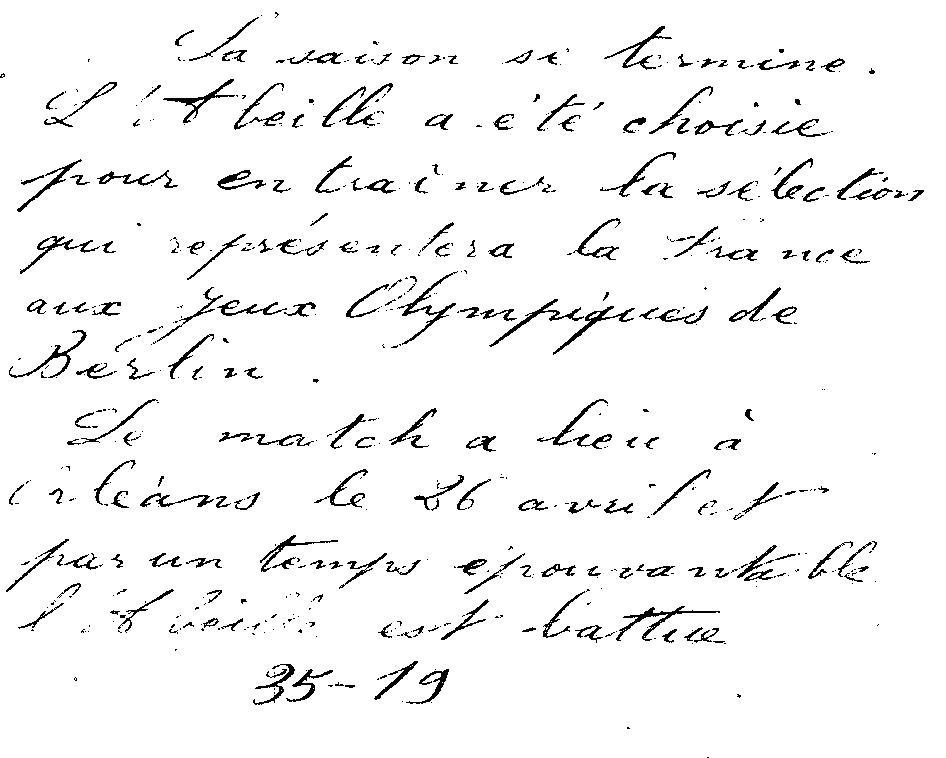 La saison se termine.
L'Abeille a été choisie
pour entraîner la sélection
qui représentera la France
aux Jeux Olympiques de
Berlin.
Le match a lieu à
Orléans le 26 avril et
par un temps épouvantable
l'Abeille est battue
35-19